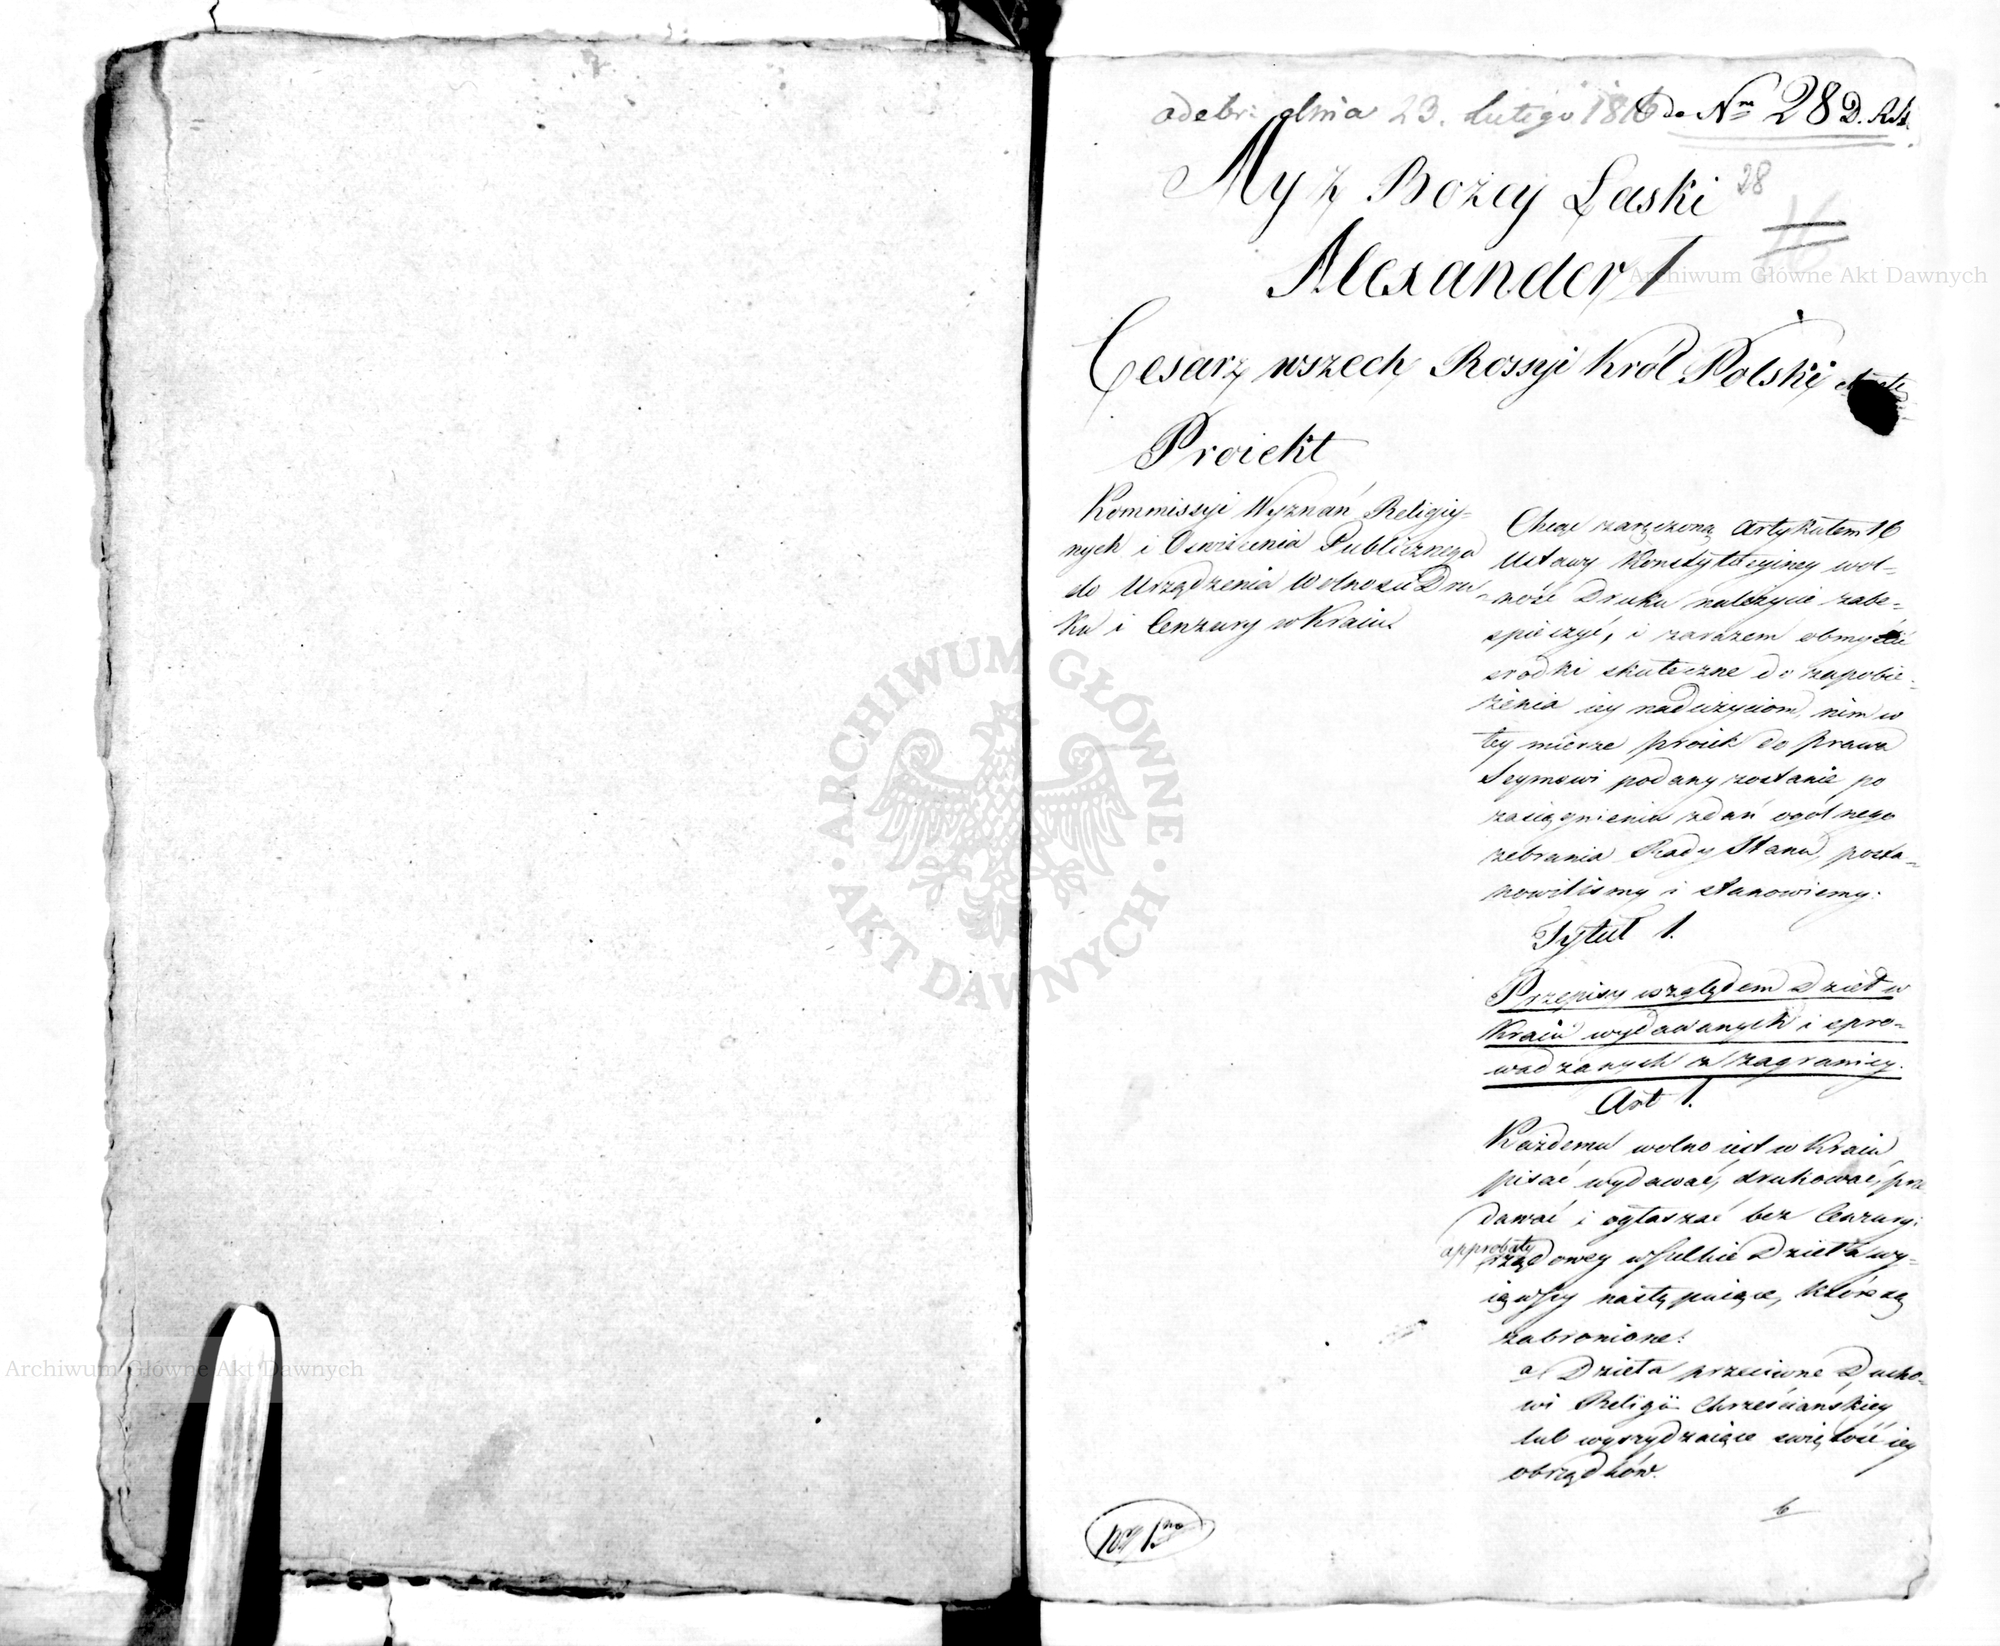 odebr: dnia 23. Lutego 1816 do Nro 28 D. R. St.
28
My z Bożey Łaski
Alexander I
Cesarz wszech Rossyi Król Polski
Proiekt
Kommissyi Wyznań Religiy-
nych i Oswiecenia Publicznego
do Urządzenia Wolnosci Dru-
ku i Cenzury w Kraiu.
Chcąc zaręczoną Artykułem 16
Ustawy Konstytucyiney wol-
ność Druku należycie zabe-
spieczyć, i zarazem obmyślić
srodki skuteczne do zapobie-
żenia iey nadużyciom, nim w
tey mierze proiekt do prawa
Seymowi podany zostanie po
zasiągnieniu zdań ogólnego
zebrania Rady Stanu, posta-
nowilismy i stanowiemy:
Tytuł 1.
Przepisy względem Dzieł w
Kraiu wydawanych i spro-
wadzanych z zagranicy.
Art 1.
Każdemu wolno iest w Kraiu
pisać wydawać, drukować, prze
dawać i ogłaszać bez Cenzury:
approbaty
rządowey wszelkie Dzieła wy-
iąwszy następuiące, które są
zabronione:
a/ Dzieła przeciwne Ducho-
wi Religii Chrześciańskiey
lub wyszydzaiące swiętość iey
obrządków.
b
Archiwum Główne Akt Dawnych
Archiwum Główne Akt Dawnych
ARCHIWUM GŁÓWNE AKT DAWNYCH